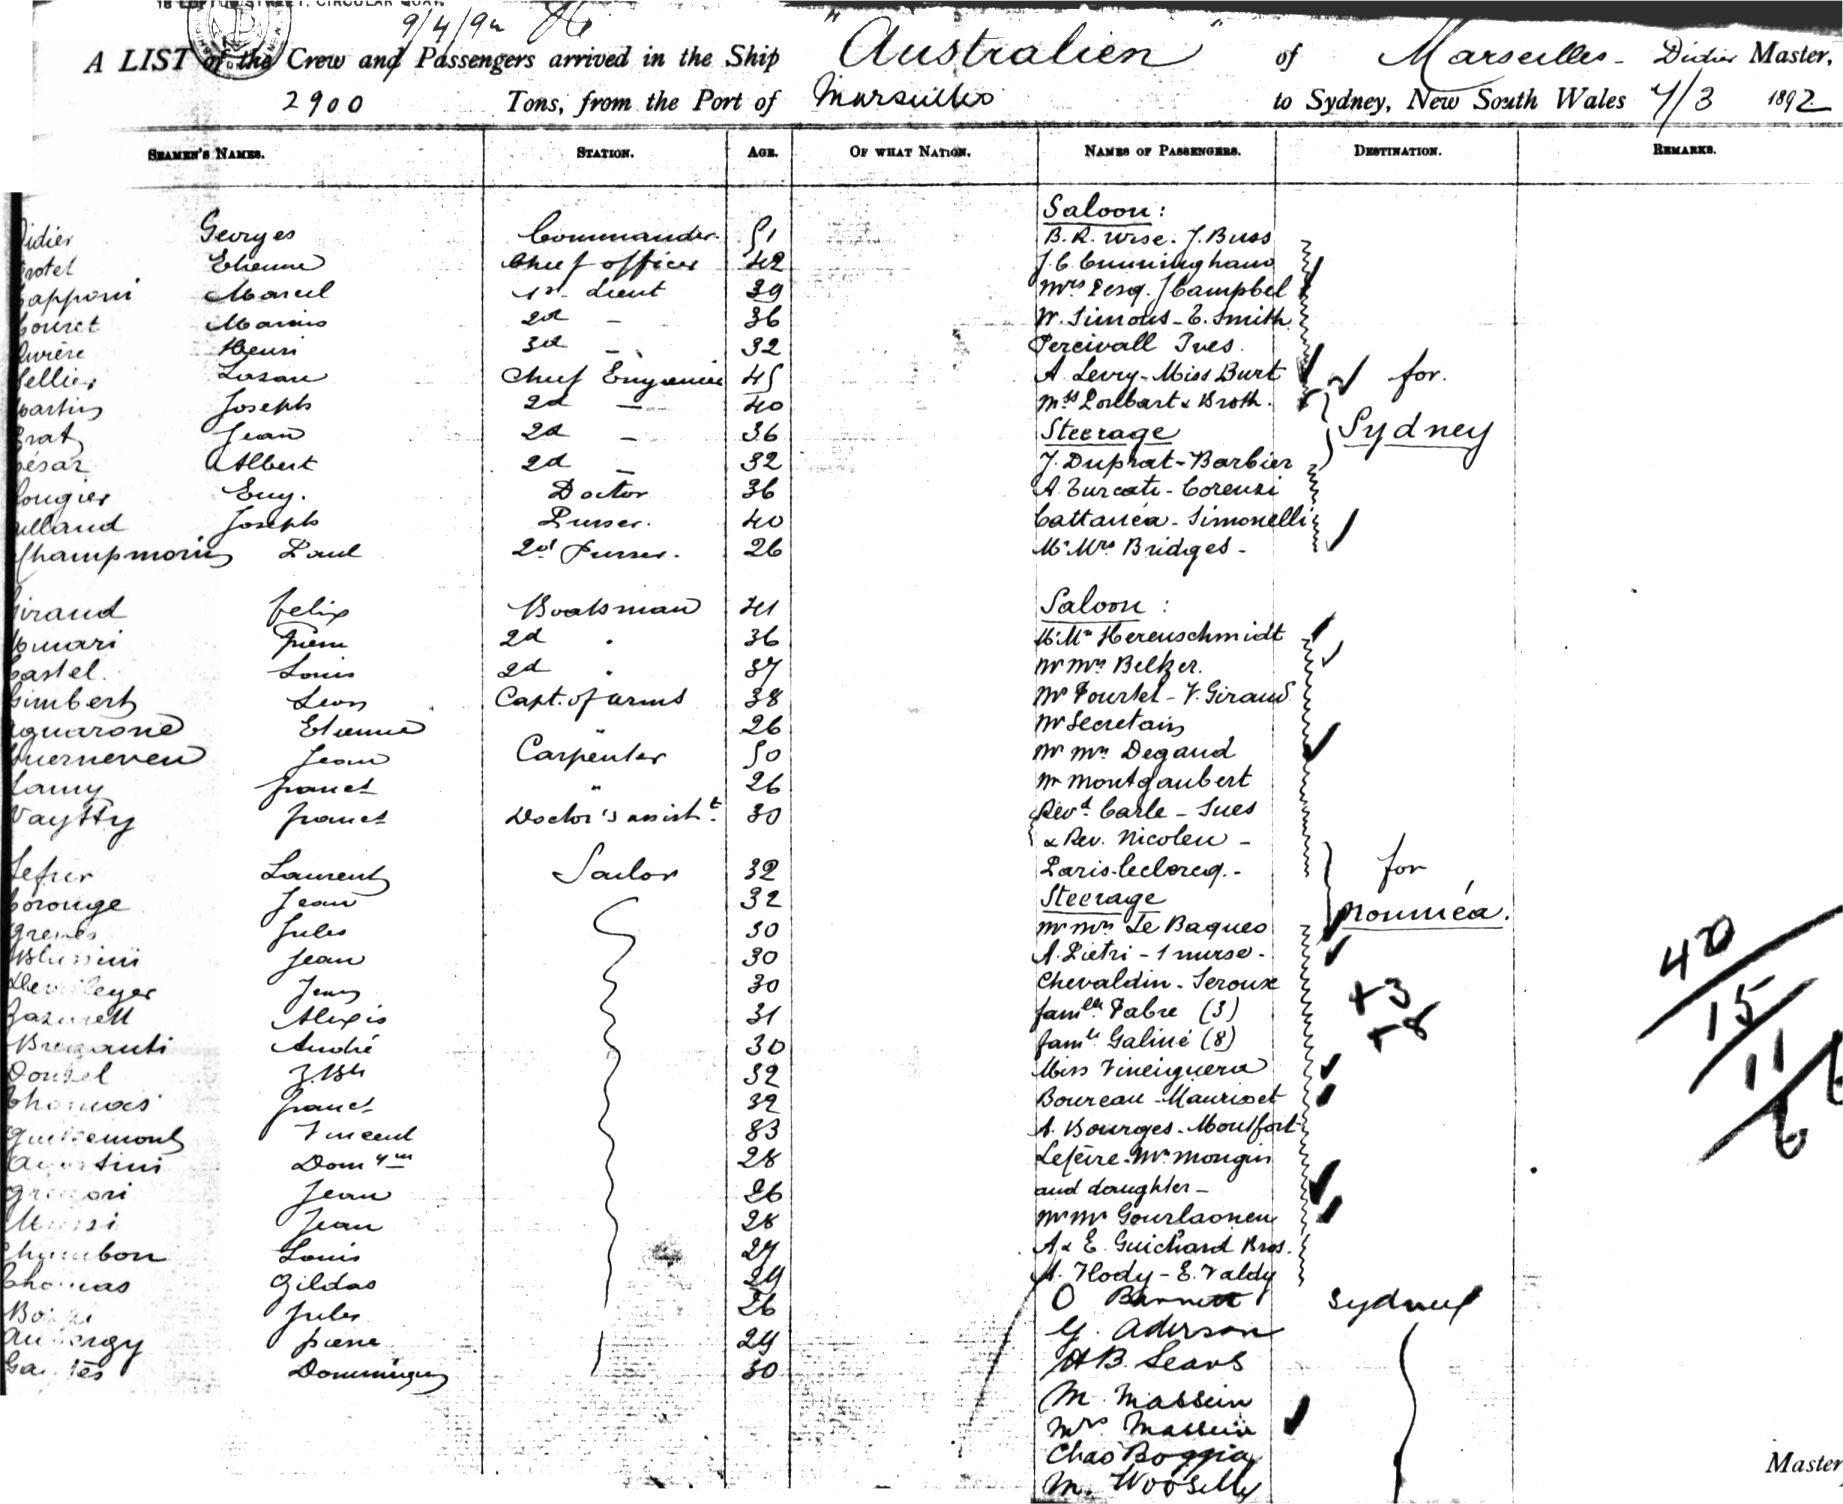 18 LOFTUS STREET, CIRCULAR QUAY.
9/4/92
A LIST of the Crew and Passengers arrived in the Ship "Australien" of Marseilles - Didier Master,
2900 Tons, from the Port of Marseilles to Sydney, New South Wales 7/3 1892
SEAMEN'S NAMES. STATION. AGE. OF WHAT NATION. NAMES OF PASSENGERS. DESTINATION. REMARKS.
Saloon:
Didier Georges Commander 51 B.R. Wise. J. Buss
Etienne Chief officer 42 J.C. Cunningham
Capponi Marcel 1st Lieut 39 Mrs Pesq. J Campbel
Couret Marius 2d - 36 W. Simons - E. Smith
Rivière Henri 3d - 32 Percivall Ives.
Tellier Lazare Chief Engineer 45 A. Levry - Miss Burt for.
Martin Joseph 2d - 40 & Broth.
Jean 2d - 36 Steerage Sydney
César Albert 2d - 32 J. Duprat - Barbier
Rougier Eug. Doctor 36 A. Turcati - Corenzi
Joseph Purser. 40 Cattanéa - Simonelli
Champmorin Paul 2d Purser. 26 Mr Mrs Bridges -
Giraud Felix Boatsman 41 Saloon:
Pierre 2d " 36 Mr Mrs Herenschmidt
Castel. Louis 2d " 37 Mr Mrs Belzer.
Gimbert Leon Capt. of arms 38 Mr Pourtet - V. Giraud
Aquarone Etienne " 26 Mr Secretain
Guerneven Jean Carpenter 50 Mr Mrs Degand
Lamy Francs " 26 Mr Montgaubert
Vaytty Francs Doctor's assistt. 30 Revd. Carle - Sues
& Rev. Nicoleu -
Lefur Laurent Sailor 32 Paris-Leclercq. - for
Corouge Jean 32 Steerage Nouméa.
Jules 30 Mr Mrs Le Baques
Jean 30 A. Pietri - 1 nurse -
Jean 30 Chevaldin - Seroux +3
Alexis 31 famlle Fabre (3)
André 30 famle Galiné (8) +8
32 Miss Vinciguera
Thomas Francs 32 Boureau - Maurisset
Vincent 33 A. Bourges - Montfort
Agostini Domque 28 Lefèvre - Mr Mongin
Jean 26 and daughter -
Jean 28 Mr Mr Gourlaouen
Chambon Louis 27 A & E. Guichard Bros.
Thomas Gildas 29 A. Hody - E. Valdy
Jules 26 O Barnett Sydney
Pierre 29 G. Aderson
Dominique 30 H B. Sears
M. Massein
Mrs Massein
Chas Boggia
M. Wooselly
40
15
11
6
Master